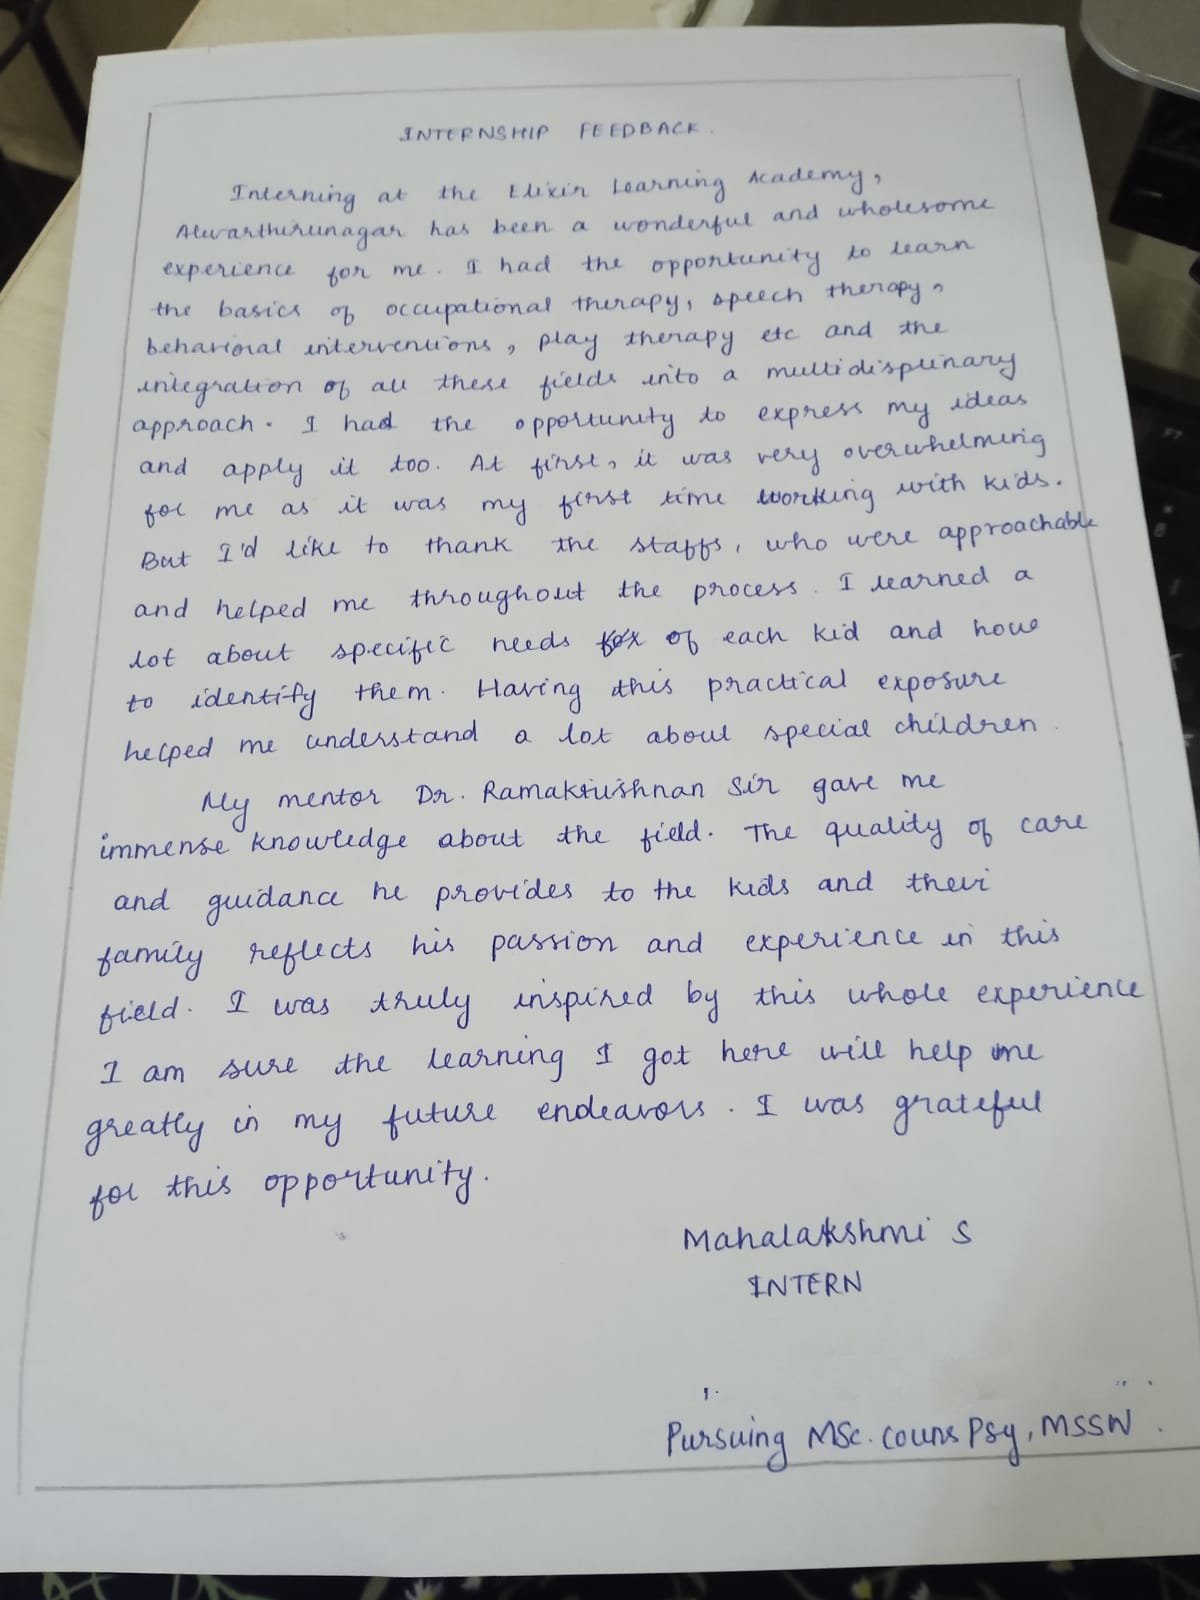 INTERNSHIP FEEDBACK.
Interning at the Elixir Learning Academy,
Alwarthirunagar has been a wonderful and wholesome
experience for me. I had the opportunity to learn
the basics of occupational therapy, speech therapy,
behavioral interventions, play therapy etc and the
integration of all these fields into a multidisplinary
approach. I had the opportunity to express my ideas
and apply it too. At first, it was very overwhelming
for me as it was my first time working with kids.
But I'd like to thank the staffs, who were approachable
and helped me throughout the process. I learned a
lot about specific needs of each kid and how
to identify them. Having this practical exposure
helped me understand a lot about special children.
My mentor Dr. Ramakrishnan Sir gave me
immense knowledge about the field. The quality of care
and guidance he provides to the kids and their
family reflects his passion and experience in this
field. I was truly inspired by this whole experience
I am sure the learning I got here will help me
greatly in my future endeavors. I was grateful
for this opportunity.
Mahalakshmi S
INTERN
Pursuing MSc. Couns Psy, MSSW.